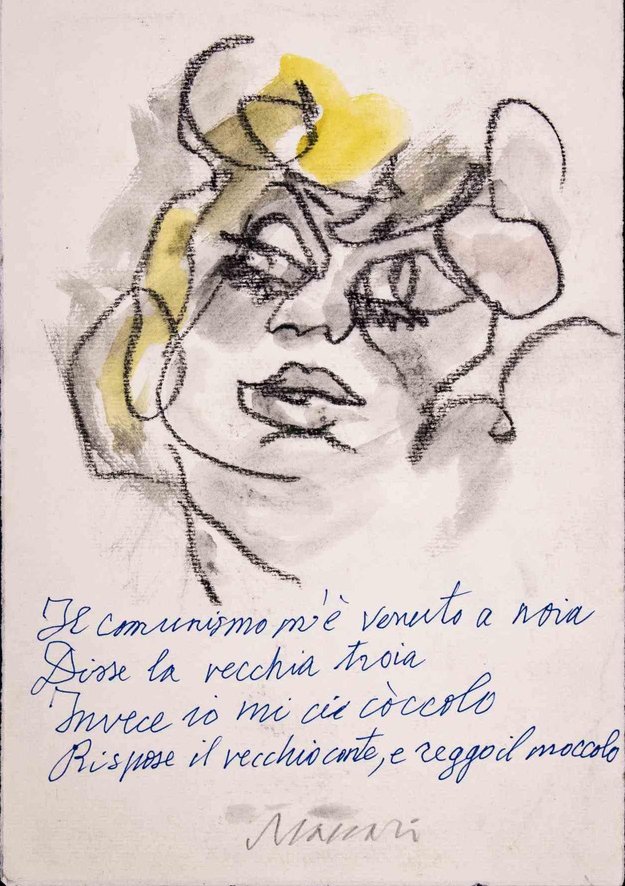 Il comunismo m'è venuto a noia
Disse la vecchia troia
Invece io mi ci còccolo
Rispose il vecchio conte, e reggo il moccolo
Maccari